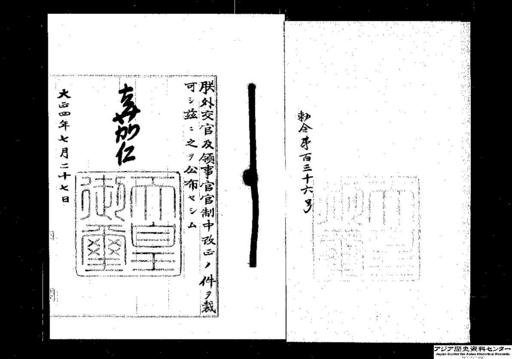 勅令第百三十六号
朕外交官及領事官官制中改正ノ件ヲ裁
可シ茲ニ之ヲ公布セシム
嘉仁
天皇
御璽
大正四年七月二十七日
アジア歴史資料センター
Japan Center for Asian Historical Records